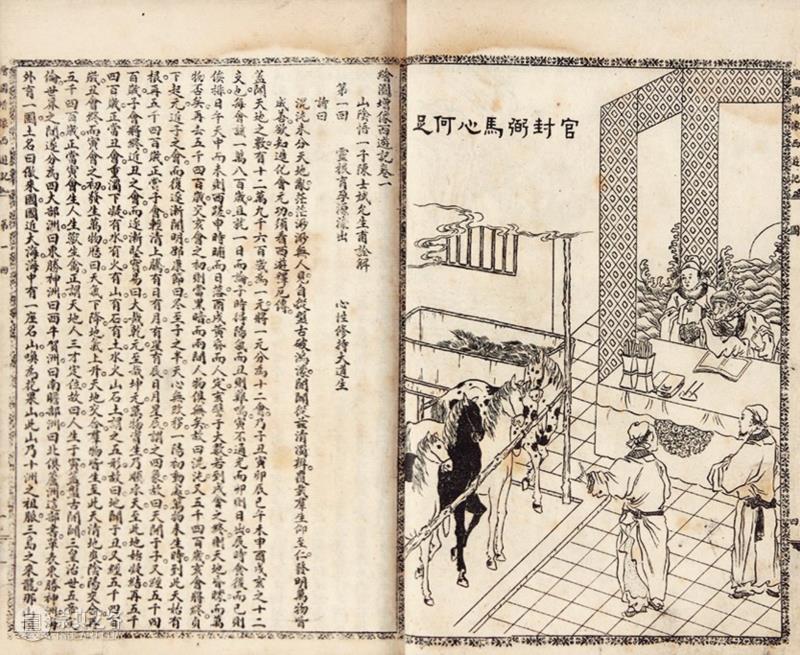 官封弼馬心何足
繪圖增像西遊記卷一
山陰悟一子陳士斌先生甫詮解
第一回　靈根育孕源流出　心性修持大道生
詩曰
混沌未分天地亂茫茫渺渺無人見自從盤古破鴻濛開闢從茲清濁辨覆載羣生仰至仁發明萬物皆
成善欲知造化會元功須看西遊釋厄傳
蓋聞天地之數有十二萬九千六百歲為一元將一元分為十二會乃子丑寅卯辰巳午未申酉戌亥之十二
支也每會該一萬八百歲且就一日而論子時得陽氣而丑則雞鳴寅不通光而卯則日出辰時食後而巳則
挨排日午天中而未則西蹉申時晡而日落酉戌黃昏而人定亥譬于大數若到戌會之終則天地昏曚而萬
物否矣再去五千四百歲交亥會之初則當黑暗而兩間人物俱無矣故曰混沌又五千四百歲亥會將終貞
下起元近子之會而復逐漸開明邵康節曰冬至子之半天心無改移一陽初動處萬物未生時到此天始有
根再五千四百歲正當子會輕清上騰有日有月有星有辰日月星辰謂之四象故曰天開于子又經五千四
百歲子會將終近丑之會而逐漸堅實易曰大哉乾元至哉坤元萬物資生乃順承天至此地始凝結再五千
四百歲正當丑會重濁下凝有水有火有山有石有土水火山石土謂之五形故曰地闢于丑又經五千四百
歲丑會終而寅會之初發生萬物曆曰天氣下降地氣上升天地交合羣物皆生至此天清地爽陰陽交合再
五千四百歲正當寅會生人生獸生禽正謂天地人三才定位故曰人生于寅感盤古開闢三皇治世五帝定
倫世界之間遂分為四大部洲曰東勝神洲曰西牛賀洲曰南贍部洲曰北俱蘆洲這部書單表東勝神洲海
外有一國土名曰傲來國國近大海海中有一座名山喚為花果山此山乃十洲之祖脈三島之來龍那山
繪圖增像西遊記　第一回